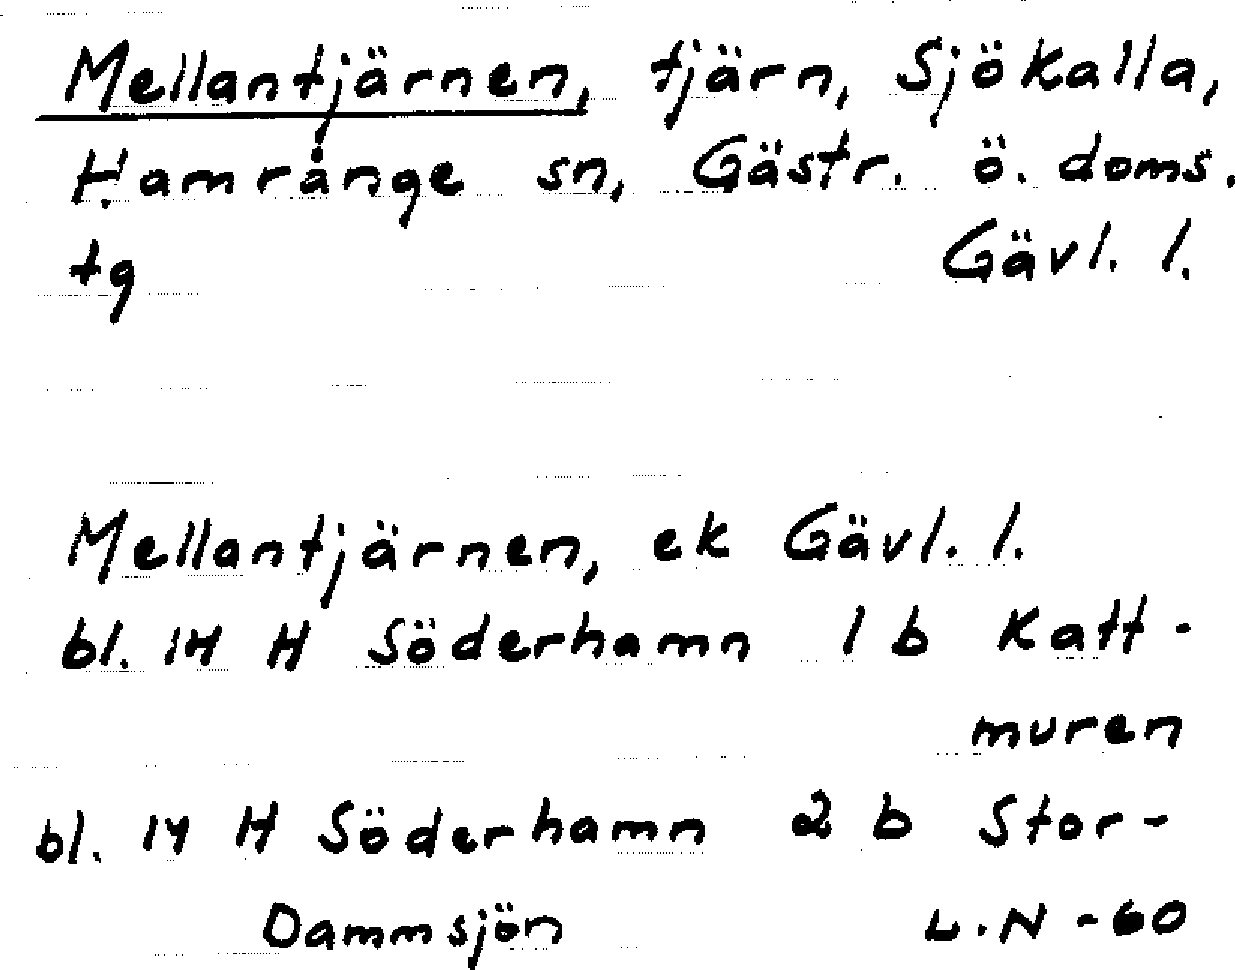 Mellantjärnen, tjärn, Sjökalla,
Hamrånge sn, Gästr. ö. doms.
tg Gävl. l.
Mellantjärnen, ek Gävl. l.
bl. 14 H Söderhamn 1 b Katt-
muren
bl. 14 H Söderhamn 2 b Stor-
Dammsjön L.N -60